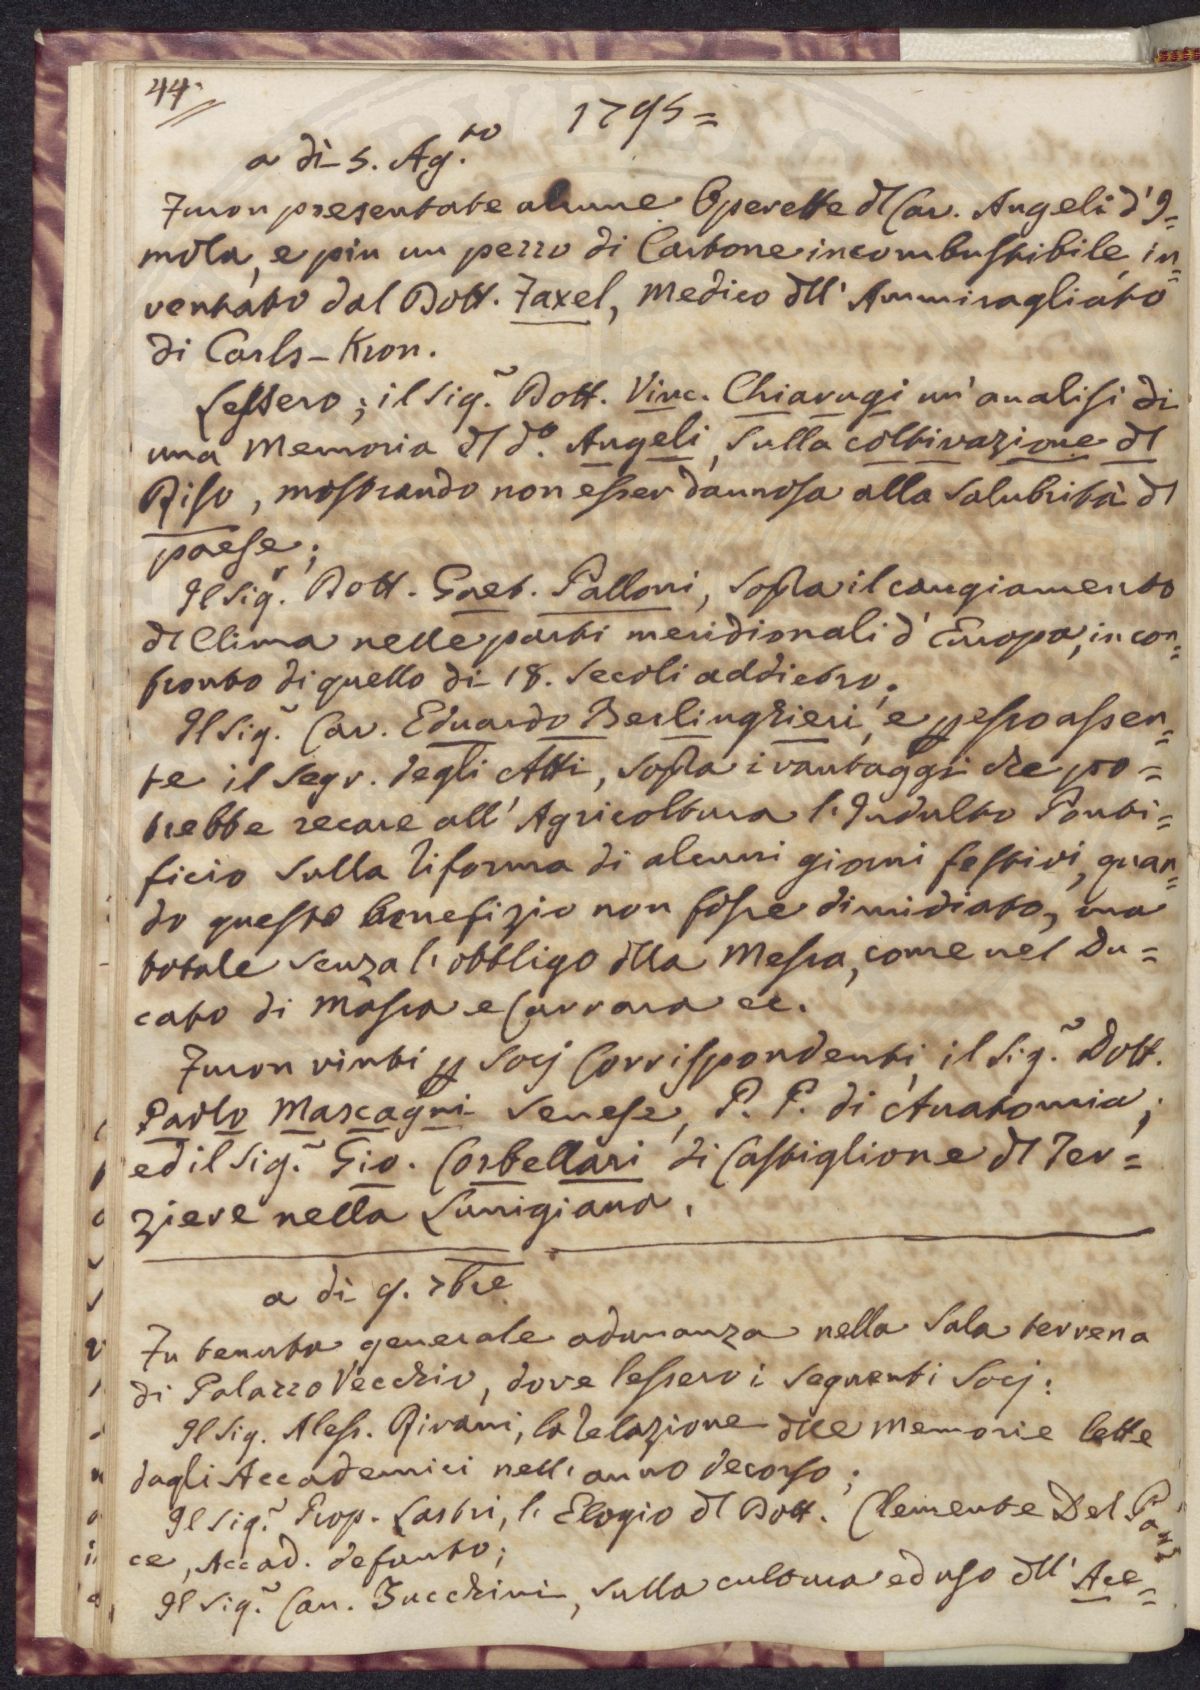 44.
1795=
a dì 5. Ag.to
Furon presentate alcune Operette dl Cav. Angeli d'I=
mola, e più un pezzo di Cartone incombustibile, in=
ventato dal Dott. Faxel, Medico dll' Ammiragliato
di Carls-Kron.
Lessero; il Sig.r Dott. Vinc. Chiarugi un'analisi di
una Memoria dl d.o Angeli, sulla coltivazione dl
Riso, mostrando non esser dannosa alla salubrità dl
paese;
Il Sig.r Dott. Gaet. Palloni, sopra il cangiamento
dl Clima nelle parti meridionali d'Europa, in con=
fronto di quello di 18. secoli addietro;
Il Sig.r Cav. Eduardo Berlinghieri, e p esso assen=
te il Segr. degli Atti, sopra i vantaggi che po=
trebbe recare all' Agricoltura l'Indulto Ponti=
ficio sulla riforma di alcuni giorni festivi, quan=
do questo benefizio non fosse dimidiato, ma
totale senza l'obbligo dlla Messa, come nel Du=
cato di Massa e Carrara ec.
Furon vinti p Socj Corrispondenti il Sig.r Dott.
Paolo Mascagni Senese, P. P. di Anatomia;
ed il Sig.r Gio. Corbellari di Castiglione dl Ter=
ziere nella Lunigiana.
a di 9. 7bre
Fu tenuta generale adunanza nella Sala terrena
di Palazzo Vecchio, dove lessero i seguenti Socj:
Il Sig. Aless. Rivani, la relazione dlle Memorie lette
dagli Accademici nell'anno decorso;
Il Sig.r Prop. Lastri, l'Elogio dl Dott. Clemente Del Pa
ce, Accad. defunto;
Il Sig.r Can. Zucchini, sulla cultura ed uso dll' Ace=